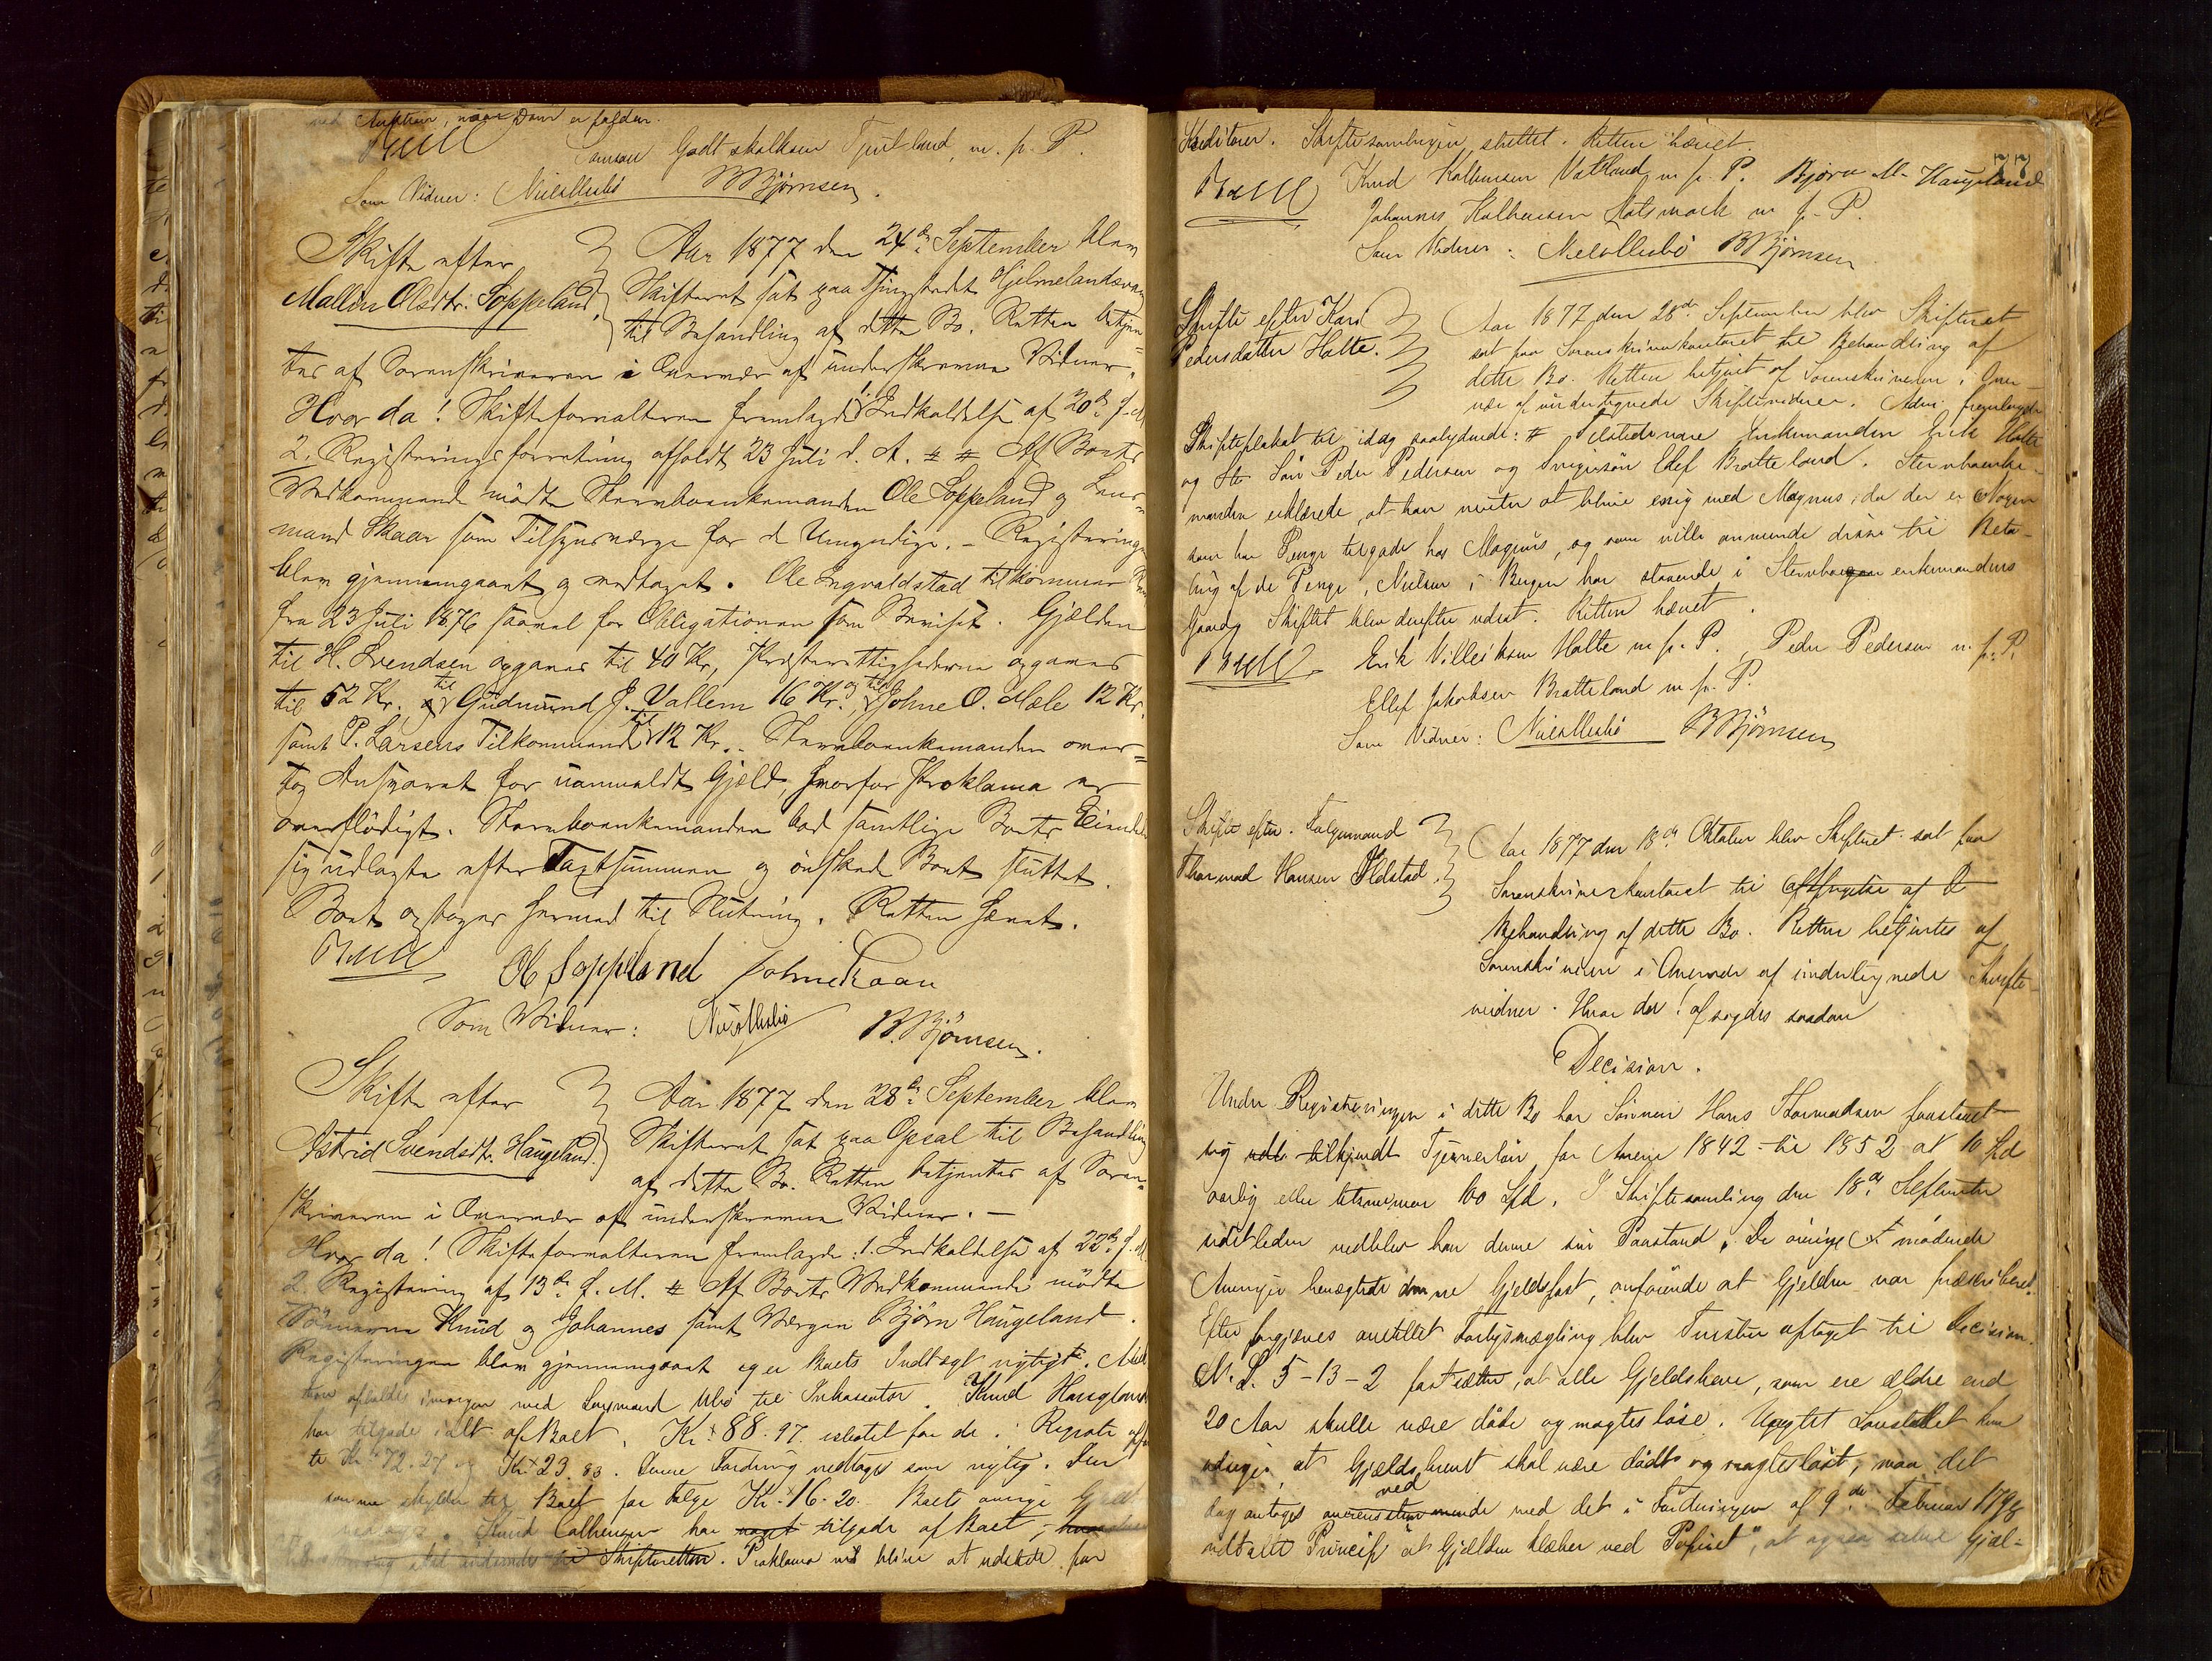 Auktion, naar Dom er falden.
Bull Samson Godtskalksen Tjentland, m. p. P.
Som Vidner: BBjørnsen.
Skifte efter
Mallin Olsdtr. Soppeland.
Aar 1877 den 24de September blev
Skifteret sat paa Thingstedet Hjelmelandsvaag
til Behandling af dette Bo. Retten betjen=
tes af Sorenskriveren i Overvær af underskrevne Vidner.
Hvor da! Skifteforvalteren fremlagde 1. Indkaldelse af 20de d. M.
2. Registreringsforretning afholdt 23 Juli d. A. # # Af Boets
Vedkommende mødte Stervboenkemanden Ole Soppeland og Lens=
mand Skaar som Tilsynsværge for de Umyndige. – Registreringen
blev gjennemgaaet og vedtaget. Ole Ingvaldstad tilkommer
fra 23 Juli 1876 saavel for Obligationen som Beviset. Gjælden
til H. Svendsen opgaves til 40 Kr, Præsterettighederne opgaves
til 52 Kr. til Gudmund J. Vallem 16 Kr. og til Johne O. Mæle 12 Kr.
samt P. Larsens Tilkommende til 12 Kr. Stervboenkemanden over=
tog Ansvaret for uanmeldt Gjæld hvorfor Proklama er
overflødigt. Stervboenkemanden bad samtlige Boets Eiendele
sig udlagte efter Taxtsummen og ønskede Boet sluttet.
Boet optages hermed til Slutning. Retten hævet.
Bull Ole Soppeland Johne Skaar
Som Vidner: B. Bjørnsen.
Skifte efter
Astrid Svendsdtr. Haugeland.
Aar 1877 den 28de September blev
Skifteret sat paa Opsal til Behandling
af dette Bo. Retten betjentes af Soren=
skriveren i Overvær af underskrevne Vidner. –
Hvor da! Skifteforvalteren fremlagde: 1. Indkaldelse af 22de d. M.
2. Registrering af 13de d. M. # Af Boets Vedkommende mødte
Sønnerne Knud og Johannes samt Værgen Bjørn Haugeland.
Registreringen blev gjennemgaaet og er Boets Indtægt rigtigt. Auk
tion afholdes imorgen med Lensmand til Inkassator. Knud Haugeland
har tilgode ialt af Boet, Kr. 88. 97. isteden for de i Registr.
te Kr. 72. 27 og Kr. 23. 83. Denne Fordring vedtages som rigtig. Den
samme skylder til Boet for Følge Kr. 16. 20. Boets øvrige Gjæld
Knud Kolbensen har noget tilgode af Boet,
Skifteretten. Proklama vil blive at udstede for
77
Kreditorer. Skiftesamlingen sluttet. Retten hævet.
Bull Knud Kolbensen Vatland m. p. P. Bjørn M. Haugeland
Johannes Kolbensen m. p. P.
Som Vidner: BBjørnsen
Skifte efter Kari
Pedersdatter Halte.
Aar 1877 den 28de September blev Skifteret
sat paa Sorenskriverkontoret til Behandling af
dette Bo. Retten betjent af Sorenskriveren i Over-
vær af undertegnede Skiftevidner. Adm. fremlagde
Skifteplakat til idag saalydende: # Tilstede vare Enkemanden Erik Halte
og Søn Peder Pedersen og Svigersøn Ellef Bratteland. Stervboenke-
manden erklærede, at han venter at blive enig med Magnus, da der er Nogen
som har Penge tilgode hos Magnus, og som ville anvende disse til Beta-
ling af de Penge, Nielsen i Bergen har staaende i Stervboenkemandens
Gaard. Skiftet blev derefter udsat. Retten hævet.
Bull Erik Villeiksen Halte m. p. P. Peder Pedersen m. p. P.
Ellef Jakobsen Bratteland m. p. P.
Som Vidner: BBjørnsen
Skifte efter Følgemand
Thormod Hansen Ildstad.
Aar 1877 den 18de Oktober blev Skifteret sat paa
Sorenskriverkontoret til Afsigelse af D
Behandling af dette Bo. Retten betjentes af
Sorenskriveren i Overvær af undertegnede Skifte-
vidner. Hvor da! afsagdes saadan
Decision.
Under Registreringen i dette Bo har Sønnen Hans Thormodsen paastaaet
sig udb tilkjendt Tjenerløn for Aarene 1842 til 1852 at 10 Spd
aarlig eller tilsammen 100 Spd. I Skiftesamling den 18de September
sidstleden vedblev han denne sin Paastand. De øvrige mødende
Arvinger benægtede denne Gjældspost, anførende at Gjælden var præskriberet.
Efter forgjæves anstillet Forligsmægling blev Tvisten optaget til Decision.
N. L. 5-13-2 fastsætter, at alle Gjeldsbreve, som ere ældre end
20 Aar skulle være døde og magtesløse. Uagtet Lovstedet kun
udsiger, at Gjældsbrevet skal være dødt og magtesløst, maa det
dog antages overensstemmende ved med det i Forordningen af 9de Februar 1798
udtalte Princip "at Gjælden klæber ved Papiret", at ogsaa selve Gjæl=